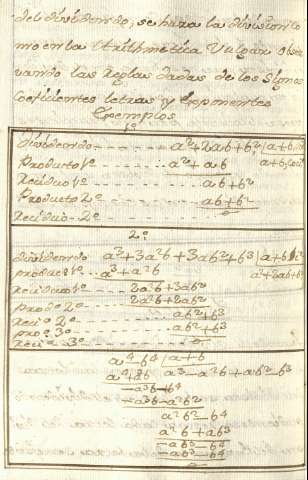 del dividendo, se hara la division co
mo en la Arithmetica Vulgar obser
vando las Reglas dadas de los Signos
Coeficientes letras y Exponentes
Exemplos
1º
Dividendo a²+2ab+b² | a+b
Producto 1º a²+ab a+b
Residuo 1º ab+b²
Producto 2º ab+b²
Residuo 2º 0
2º
dividendo a³+3a²b+3ab²+b³ | a+b
produc 1º a³+a²b a²+2ab+b²
residuo 1º 2a²b+3ab²
prod 2º 2a²b+2ab²
resi 2º ab²+b³
pro 3º ab²+b³
resi 3º 0
a⁴-b⁴ | a+b
a⁴+a³b a³-a²b+ab²-b³
-a³b-b⁴
-a³b-a²b²
a²b²-b⁴
a²b²+ab³
-ab³-b⁴
-ab³-b⁴
0